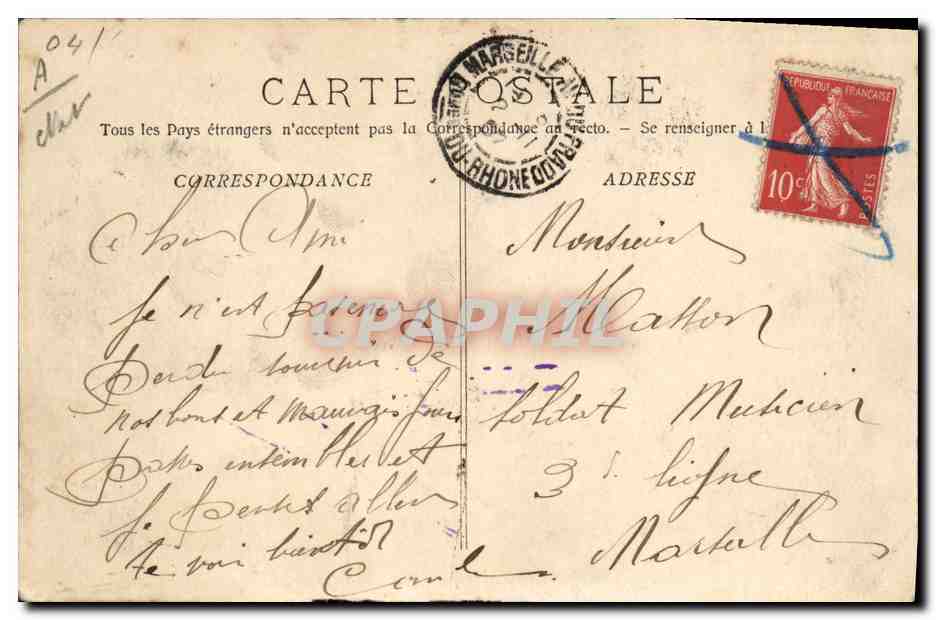 04/
A
CARTE POSTALE
Tous les Pays étrangers n'acceptent pas la Correspondance au recto. - Se renseigner à l
CORRESPONDANCE
ADRESSE
MARSEILLE
DU-RHONE
REPUBLIQUE FRANÇAISE
10c
POSTES
Cher Ami
Je n'est pas encore
perdu souvenir de
nos bons et mauvais jours
passés ensembles et
Je penses aller
te voir bientôt
Monsieur
Masson
soldat Musicien
3e ligne
Marseille
CPAPHIL